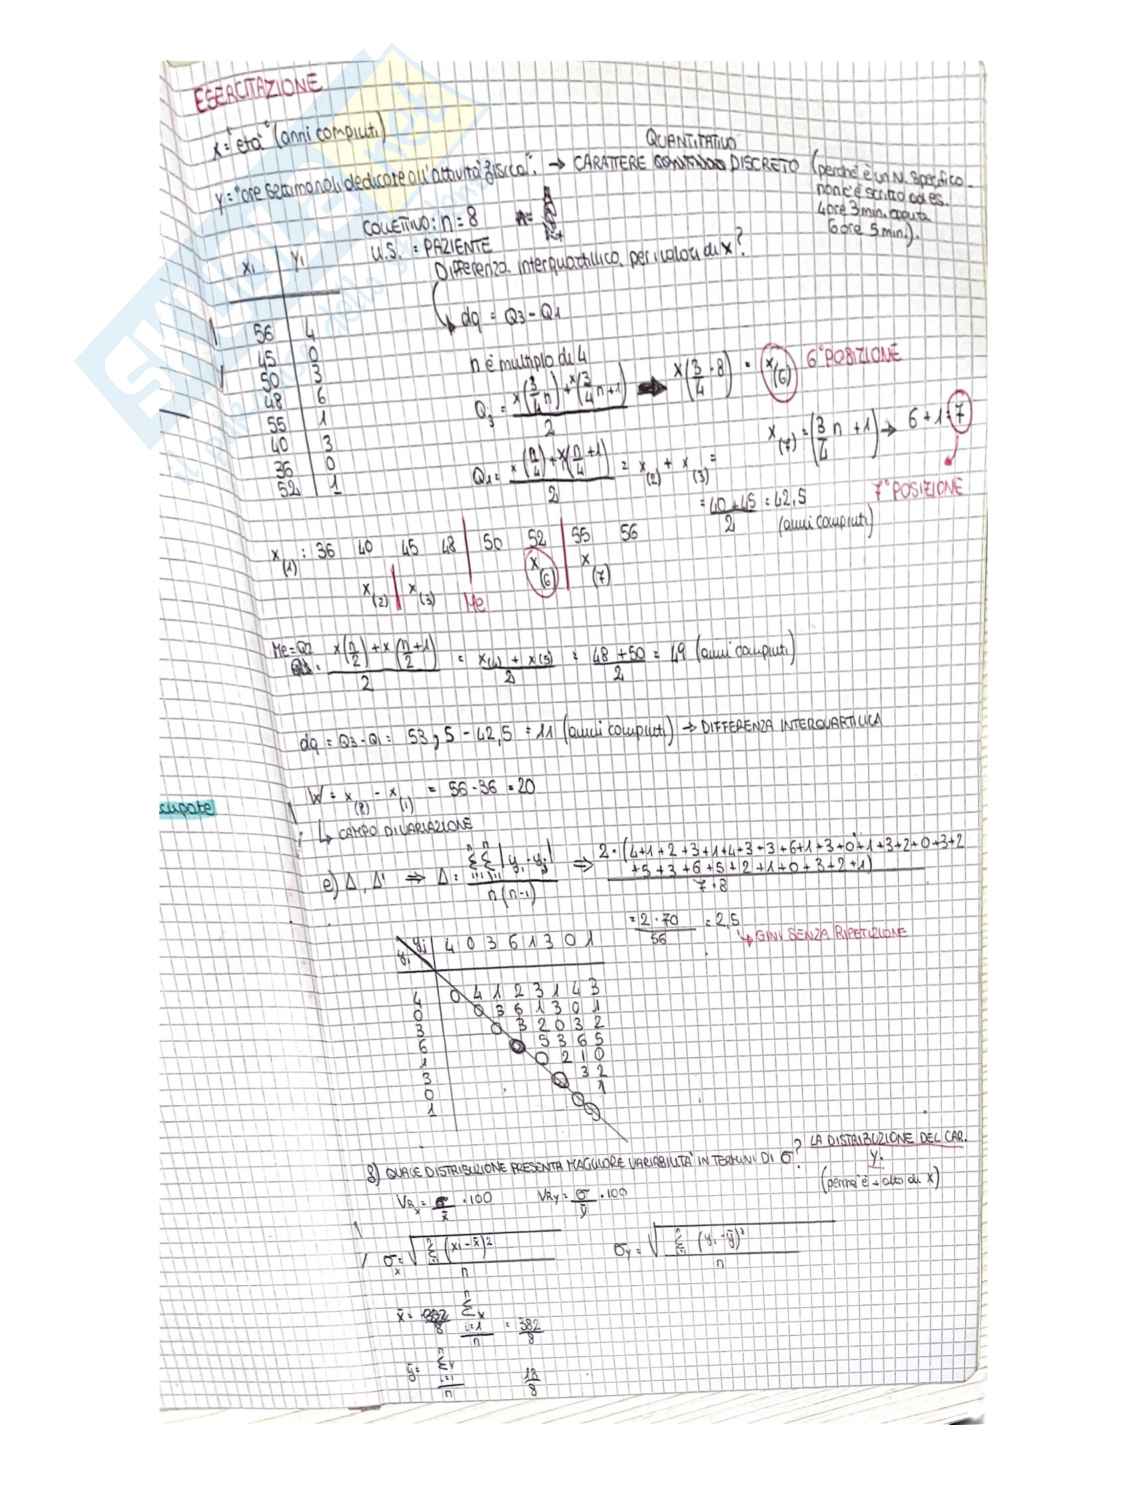 ESERCITAZIONE
x = "età" (anni compiuti)
QUANTITATIVO
y = "ore settimanali dedicate all'attività fisica". → CARATTERE CONTINUO DISCRETO (perché è un N. specifico.
non c'è scritto ad es.
4 ore 3 min. oppure
6 ore 5 min.).
COLLETTIVO: n = 8
U.S. = PAZIENTE
Differenza interquartilica per i valori di x?
xi yi
dq = Q3 - Q1
56 4
45 0
50 3
48 6
55 1
40 3
36 0
52 1
n è multiplo di 4
Q3 = x(3/4 n) + x(3/4 n+1) / 2 → x(3/4 · 8) = x(6) 6° POSIZIONE
x(7) = (3/4 n + 1) → 6 + 1 = 7
7° POSIZIONE
Q1 = x(n/4) + x(n/4 + 1) / 2 = x(2) + x(3) =
= 40 + 45 / 2 = 42,5
(anni compiuti)
x(1) : 36 40 45 48 | 50 52 | 55 56
x(2) | x(3) Me x(6) x(7)
Me = Q2 = x(n/2) + x(n/2 + 1) / 2 = x(4) + x(5) / 2 = 48 + 50 / 2 = 49 (anni compiuti)
dq = Q3 - Q1 = 53,5 - 42,5 = 11 (anni compiuti) → DIFFERENZA INTERQUARTILICA
cupate
W = x(8) - x(1) = 56 - 36 = 20
↳ CAMPO DI VARIAZIONE
e) Δ, Δ' ⇒ Δ = n Σ i=1 n Σ j=1 |yi - yj| / n(n-1) ⇒ 2 · (4+1+2+3+1+4+3+3+6+1+3+0+1+3+2+0+3+2
+5+3+6+5+2+1+0+3+2+1) / 7·8
= 2·70 / 56 = 2,5
↳ GINI SENZA RIPETIZIONE
yi yj 4 0 3 6 1 3 0 1
4 0 4 1 2 3 1 4 3
0 0 3 6 1 3 0 1
3 0 3 2 0 3 2
6 0 5 3 6 5
1 0 2 1 0
3 0 3 2
0 0 1
1 0
f) QUALE DISTRIBUZIONE PRESENTA MAGGIORE VARIABILITÀ IN TERMINI DI σ? LA DISTRIBUZIONE DEL CAR.
y.
(perché è + alto di x)
VRx = σ / x̄ · 100 VRy = σ / ȳ · 100
σx = √ n Σ i=1 (xi - x̄)² / n σy = √ n Σ i=1 (yi - ȳ)² / n
x̄ = n Σ i=1 x / n = 382 / 8
ȳ = n Σ i=1 y / n 18 / 8